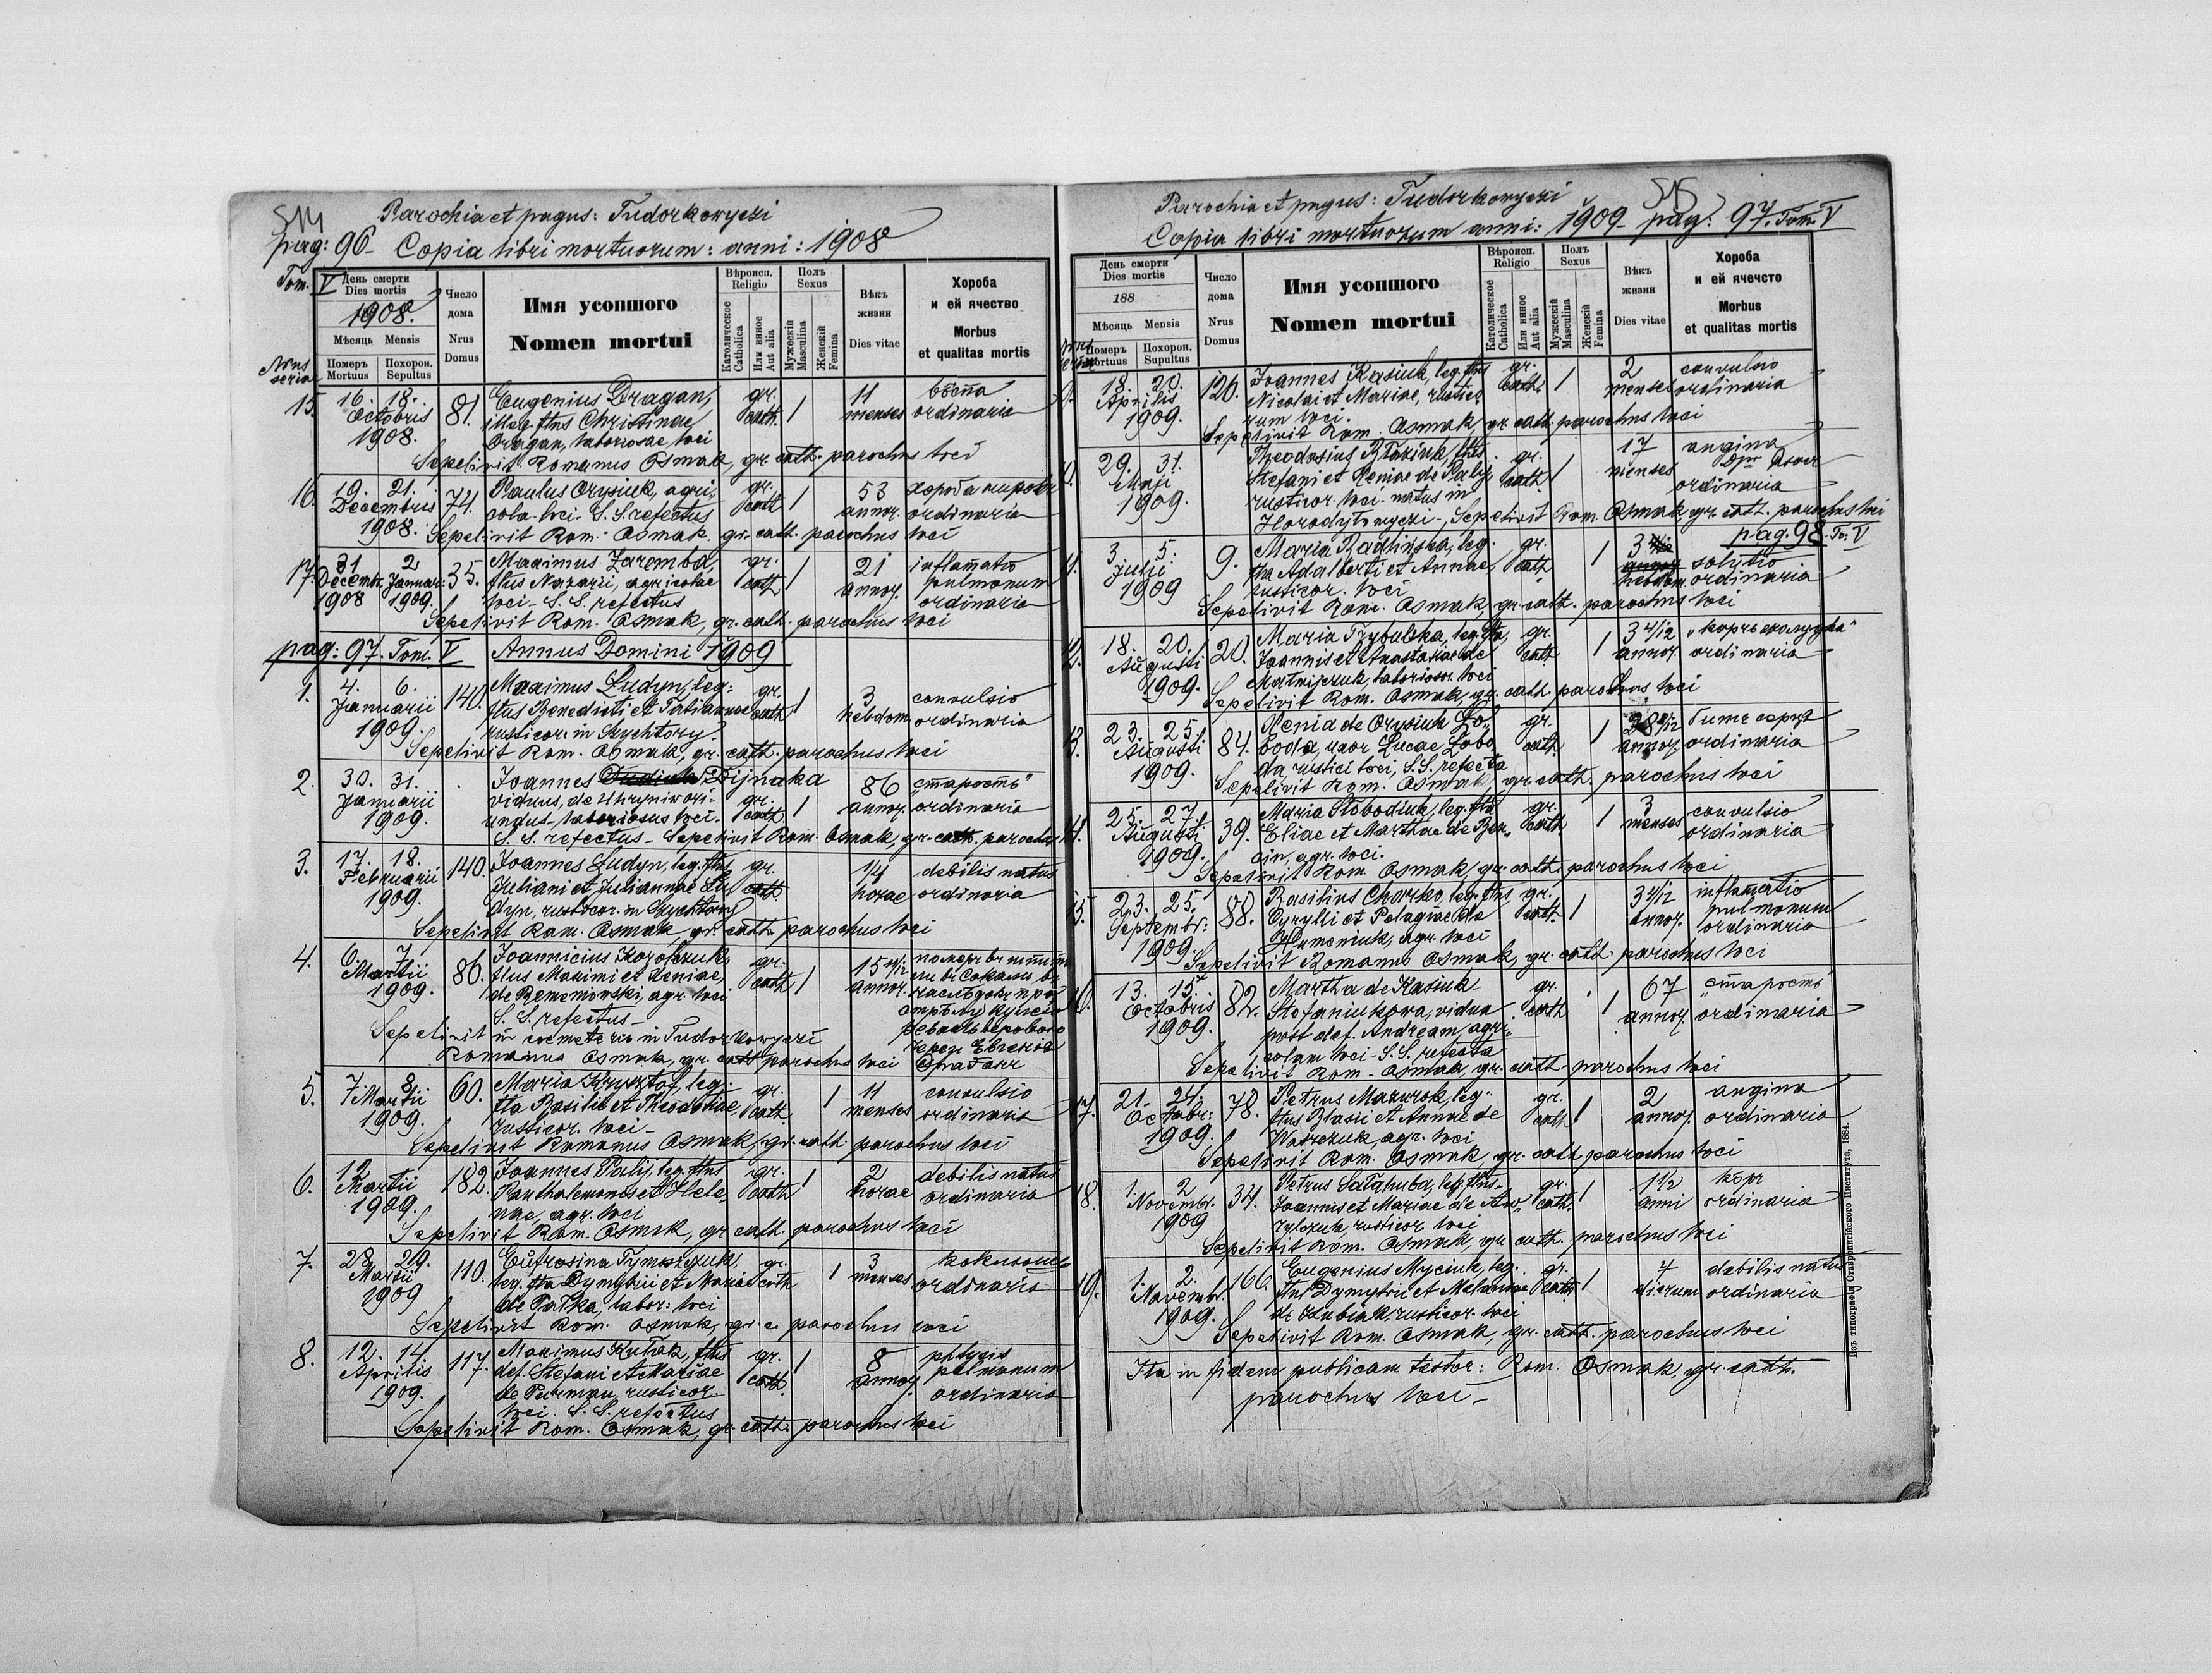 514
Parochia et pagus: Tudorkowyczi
pag: 96 - Copia libri mortuorum: anni: 1908
Tom. V
День смерти
Dies mortis
1908.
Мѣсяць Mensis
Померъ
Mortuus
Похорон.
Sepultus
Число
дома
Nrus
Domus
Имя усопшого
Nomen mortui
Вѣроисп.
Religio
Католическое
Catholica
Или инное
Aut alia
Полъ
Sexus
Мужескій
Masculina
Женскій
Femina
Вѣкъ
жизни
Dies vitae
Хороба
и ей ячество
Morbus
et qualitas mortis
Nrus
seriae
15. 16. 18. 81. Eugenius Dragan, gr. 1 11
Octobris illeg. flus Christinae cath. menses ordinaria
1908. Dragan, laboriosae loci
Sepelivit Romanus Osmak, gr. cath. parochus loci
16. 19. 21. 74. Paulus Orysiuk, agri- gr. 1 53 хороба
Decembris cola loci. S. S. refectus cath annor. ordinaria
1908. Sepelivit Rom. Osmak, gr. cath. parochus loci
17. 31 2 35. Maximus Zaremba, gr. 1 21 inflam̄atio
Decembr. Januar: flus Nazarii, agricolae cath annor. pulmonum
1908 1909. loci - S. S. refectus ordinaria
Sepelivit Rom. Osmak, gr. cath. parochus loci
pag: 97. Tom. V Annus Domini 1909
1. 4. 6. 140. Maximus Ludyn, leg: gr. 1 3 convulsio
Januarii flus Benedicti et Tatiannae cath hebdom ordinaria
1909. rusticor. in Szychtory.
Sepelivit Rom. Osmak, gr. cath. parochus loci
2. 30. 31. Joannes Dijnaka 86 „старость"
Januarii viduus, de Uhryniw ori- gr. 1 annor. ordinaria
1909. undus - laboriosus loci. cath
S. S. refectus - Sepelivit Rom. Osmak, gr. cath. parochus
3. 17. 18. 140. Joannes Ludyn, leg. flus gr. 1/4 debilis natus
Februarii Juliani et Juliannae Lu- cath. horae ordinaria
1909. dyn, rusticor. in Szychtory
Sepelivit Rom. Osmak, gr. cath. parochus loci
4. 6. 7 86. Joannicius gr. 1 15
Martii flus Maximi et Xeniae, cath annor.
1909. agr. loci
S. S. refectus -
Sepelivit in coemeterio in Tudorkowyczi
Romanus Osmak, gr. cath parochus loci
5. 7 8 60. Maria Krysztof, leg. gr. 1 11 convulsio
Martii fla Basilii et Theodosiae cath. menses ordinaria
1909. rusticor. loci -
Sepelivit Romanus Osmak, gr. cath. parochus loci
6. 12 182. Joannes Palij, leg. flus gr. 1 2 debilis natus
Martii Panthalemonis et Hele- cath horae ordinaria
1909. nae, agr. loci
Sepelivit Rom. Osmak, gr cath. parochus loci
7. 28 29. 110. Eufrosina Tymszczuk, gr. 1 3 коклюшъ
Martii leg. fla Dymytrii et Maria cath menses ordinaria
1909 de Pałka, labor: loci
Sepelivit Rom. Osmak, gr. c. parochus loci
8. 12. 14. 117. Maximus Kuhak, flus gr. 1 8 phtysis
Aprilis def. Stefani et Mariae cath. annor. pulmonum
1909. de Puhman, rusticor. ordinaria
loci. S. S. refectus
Sepelivit Rom. Osmak, gr. cath. parochus loci
515
Parochia et pagus: Tudorkowyczi
Copia libri mortuorum anni: 1909 - pag: 97. Tom. V
День смерти
Dies mortis
188
Мѣсяць Mensis
Померъ
Mortuus
Похорон.
Supultus
Число
дома
Nrus
Domus
Имя усопшого
Nomen mortui
Вѣроисп.
Religio
Католическое
Catholica
Или инное
Aut alia
Полъ
Sexus
Мужескій
Masculina
Женскій
Femina
Вѣкъ
жизни
Dies vitae
Хороба
и ей ячечсто
Morbus
et qualitas mortis
9. 18. 20. 120. Joannes Kasiuk, leg. flus gr. 1 2 convulsio
Aprilis Nicolai et Mariae, rustico- cath. menses ordinaria
1909. rum loci.
Sepelivit Rom. Osmak, gr. cath. parochus loci
10. 29. 31. Theodosius Błaziuk, flus gr. 1 17 angina
Maji Stefani et Xeniae de Palij cath. menses
1909. rusticor. loci. natus in ordinaria
Horodyłowyczi -, Sepelivit Rom. Osmak, gr. cath. parochus loci
pag. 98. To. V
11. 3. 5. 9. Maria Radlińska, leg. gr. 1 3
Julii fla Adalberti et Annae, cath hebdom. ordinaria
1909 rusticor. loci
Sepelivit Rom. Osmak, gr. cath. parochus loci
12. 18. 20. 20. Maria Trybulska, leg. fla, gr. 1 3 4/12
Augusti Joannis et Anastasiae de cath annor. ordinaria
1909. Matwijczuk, laborios. loci
Sepelivit Rom. Osmak, gr. cath. parochus loci
13. 23. 25. 84. Xenia de Orysiuk Ło- gr. 1 28
Augusti boda, uxor Lucae Łobo cath. annor. ordinaria
1909. da, rustici loci, S. S. refecta
Sepelivit Rom. Osmak, gr. cath. parochus loci
14. 25. 27. 39. Maria Słobodiuk, leg. fla gr. 1 3 convulsio
Augusti Eliae et Marthae de cath menses ordinaria
1909. agr. loci.
Sepelivit Rom. Osmak, gr. cath. parochus loci
15. 23. 25. 88. Basilius Charko, leg. flus gr. 1 3 4/12 inflam̄atio
Septembr: Cyrylli et Pelagiae de cath. annor. pulmonum
1909. Humeniuk, agr. loci ordinaria
Sepelivit Romanus Osmak, gr. cath. parochus loci
16. 13. 15. 82. Martha de Kasiuk gr. 1 67 „старость"
Octobris Stefaniukowa, vidua cath annor. ordinaria
1909. post def. Andream, agri-
colam loci - S. S. refecta
Sepelivit Rom. Osmak, gr. cath. parochus loci
17. 21. 24. 78. Petrus Mazurok, leg. gr. 1 2 angina
Octobr: flus Blasii et Annae de cath. annor. ordinaria
1909. agr. loci
Sepelivit Rom. Osmak, gr. cath parochus loci
18. 1. 2 34. Petrus Sałahuba, leg. flus gr. 1 1 1/2 кôръ
Novembr. Joannis et Mariae de cath. anni ordinaria
1909 rusticor. loci
Sepelivit Rom. Osmak, gr cath. parochus loci
19. 1. 2. 160. Eugenius Myciuk, leg. gr. 1 7 debilis natus
Novembr. flus Dymytrii et Melaniae cath. dierum ordinaria
1909. rusticor. loci
Sepelivit Rom. Osmak, gr. cath. parochus loci
Ita in fidem publicam testor: Rom. Osmak, gr. cath.
parochus loci -
Изъ типографіи Ставропигійского Института, 1884.